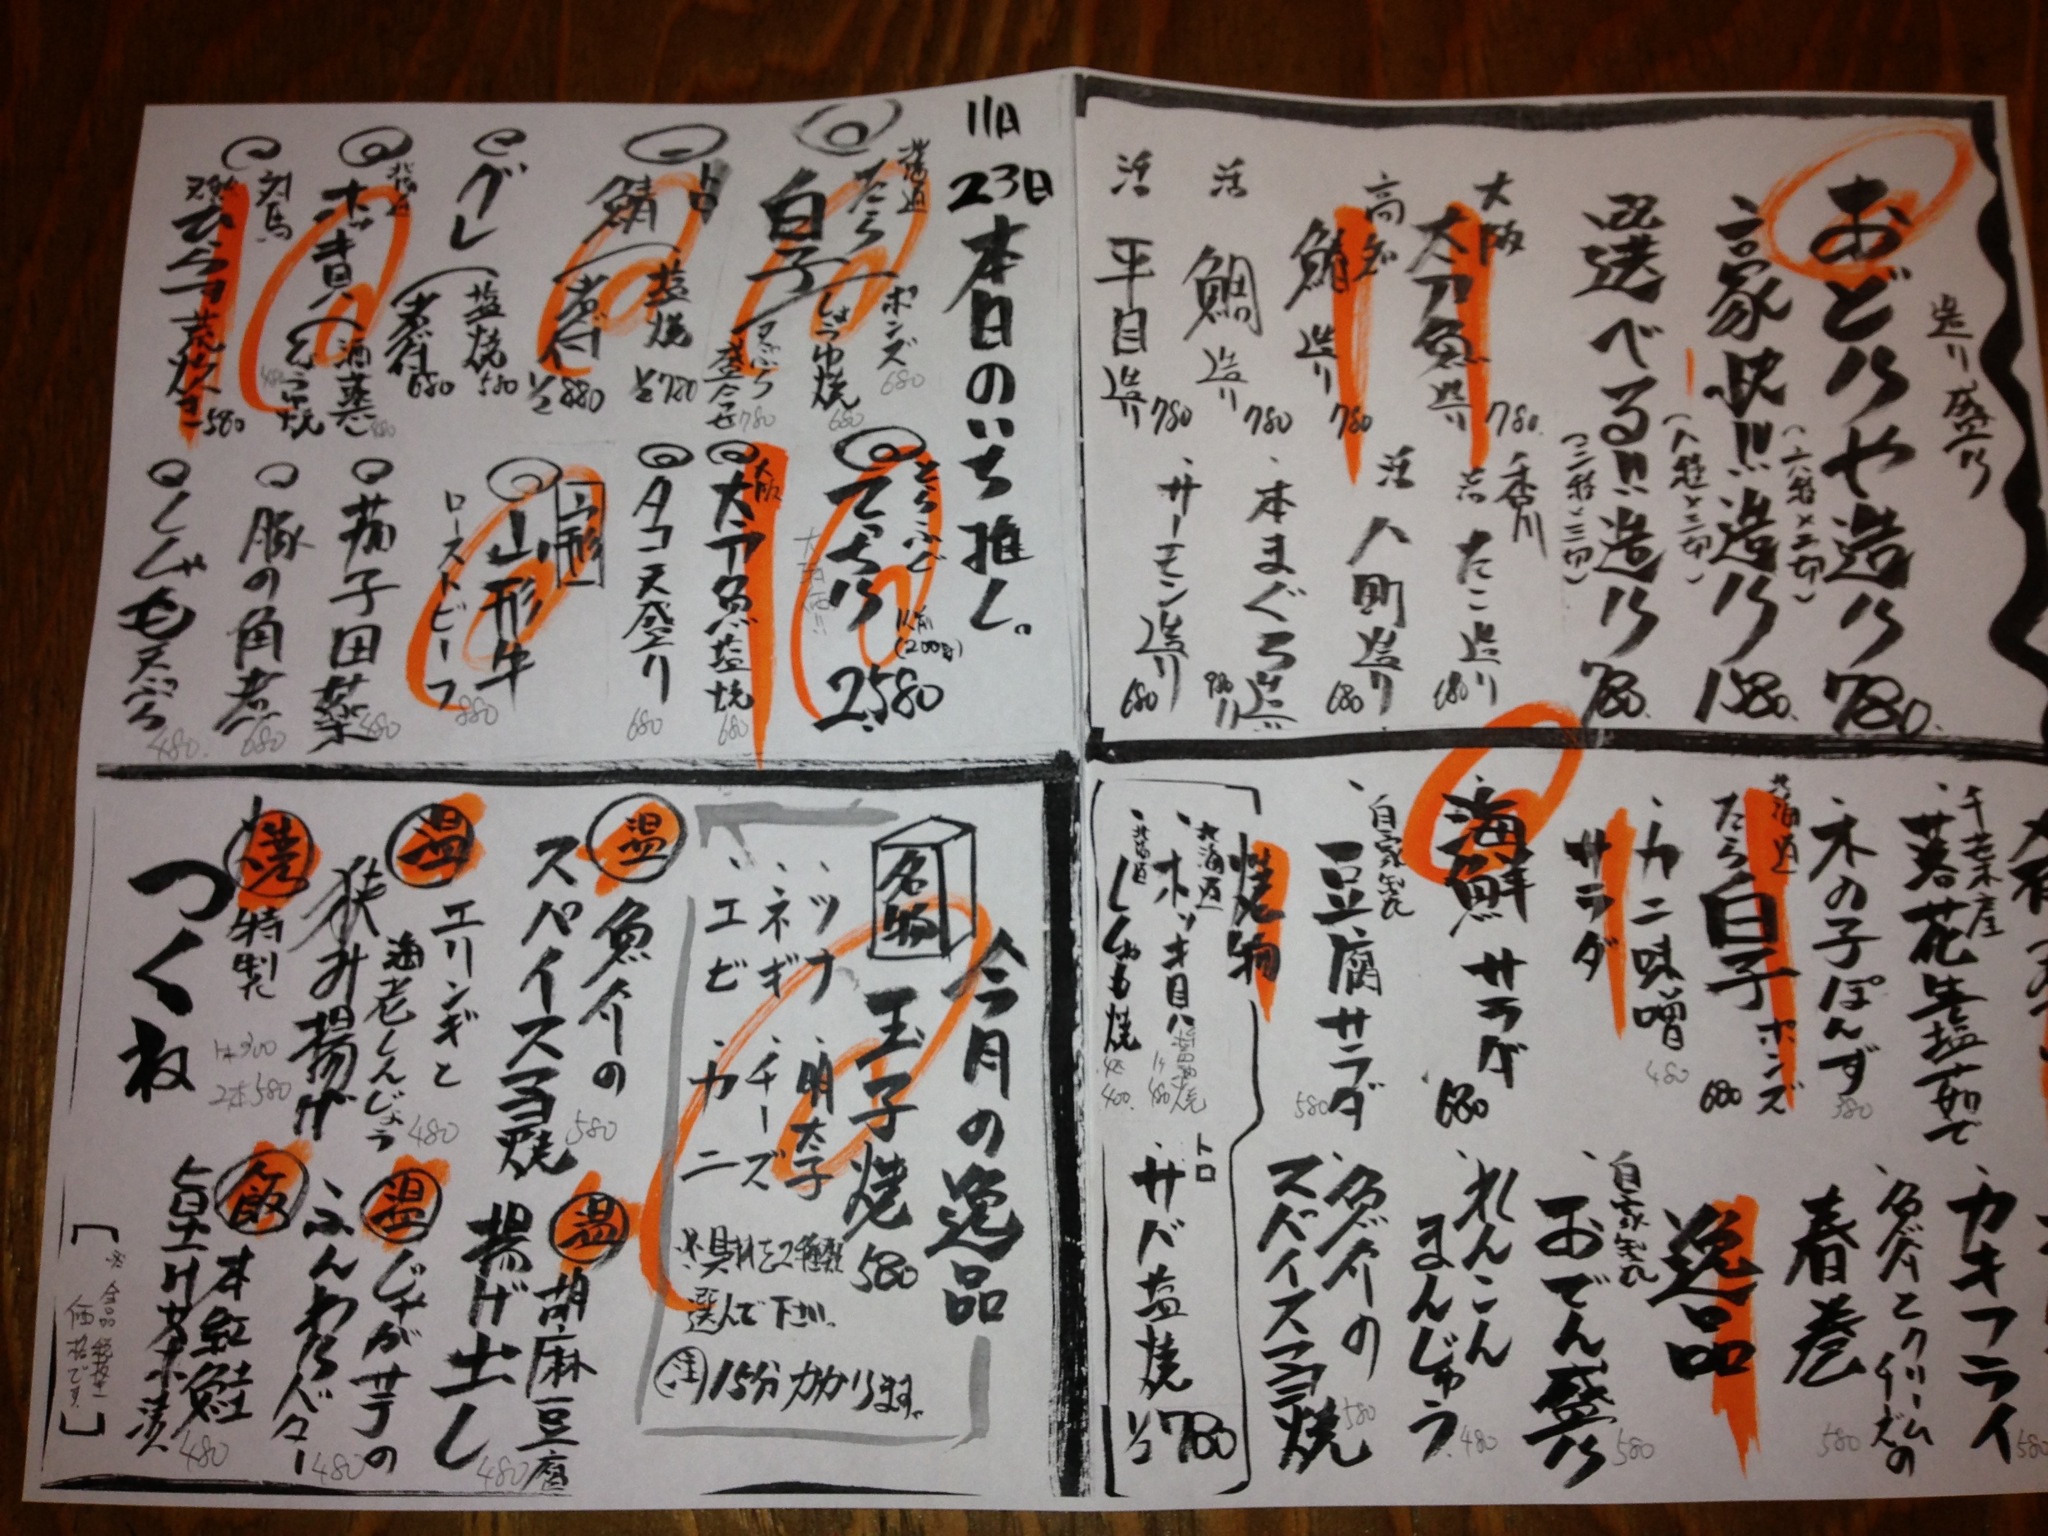 造り盛り
おどりや造り 780.
豪快!!造り 1580.
(二種×三切)
選べる!!造り 780.
大阪
太刀魚造り 780.
造り 780
活 鯛 造り 780
活 平目 造り 780
香川
たこ造り 680
活 造り 680
本まぐろ造り
サーモン造り 680
11月23日
本日のいち推し。
北海道
たら白子
ポンズ 680
しょうゆ焼 680
天ぷら盛合せ 780
トロ鯖
塩焼 ½780
煮付 ½880
グレ
塩焼 580
煮付 680
北海道
ホッキ貝
酒蒸し 480
しょうゆ焼 480
対馬
天然ひらマサ荒炊き 580
とらふぐ
てっちり 2.580
1人前(200g)
大阪
太刀魚塩焼 680
タコ天盛り 680
山形
山形牛
ローストビーフ 880
茄子田楽 480
豚の角煮 680
ししゃも天ぷら 480.
千葉産
落花生塩茹で
木の子ぽんず 380
北海道
たら白子
ポンズ 680
カニ味噌 480
サラダ
海鮮サラダ 680
自家製
豆腐サラダ 580
焼物
北海道
ホッキ貝
480
北海道
ししゃも焼
400.
トロ
サバ塩焼 ½780
カキフライ 580
魚介とクリームチーズの
春巻 580
逸品
自家製
おでん盛り 580
れんこん
まんじゅう 480
魚介の
スパイスマヨ焼 580
今月の逸品
名物
玉子焼 580
・ツナ ・明太子
・ネギ ・チーズ
・エビ ・カニ
※具材を2種類
選んで下さい。
注 15分かかります。
温 魚介の
スパイスマヨ焼 580
温 エリンギと
海老しんじょう
挟み揚げ 480
焼 特製
つくね
1本300
2本580
温 胡麻豆腐
揚げ出し 480
温 じゃが芋の
ふんわりバター 480
飯 本紅鮭
皇けお茶漬 480
※全品税抜き
価格です。